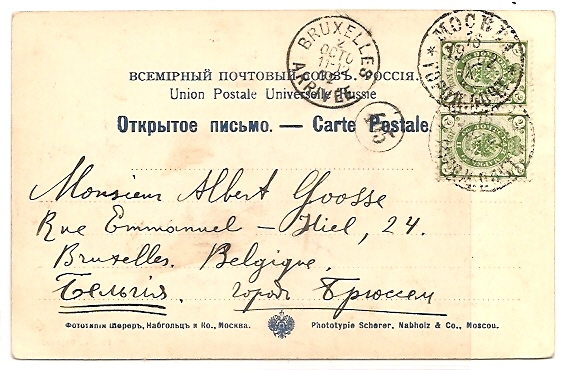 BRUXELLES
2
OCTO
ARRIVÉE
МОСКВА
ВСЕМІРНЫЙ ПОЧТОВЫЙ СОЮЗЪ. РОССІЯ.
Union Postale Universelle Russie
Открытое письмо. — Carte Postale.
Monsieur Albert Goosse
Rue Emmanuel – Hiel, 24.
Bruxelles. Belgique.
Бельгія. городъ Брюссель
Фототипія Шереръ, Набгольцъ и Ко., Москва. Phototypie Scherer, Nabholz & Co., Moscou.